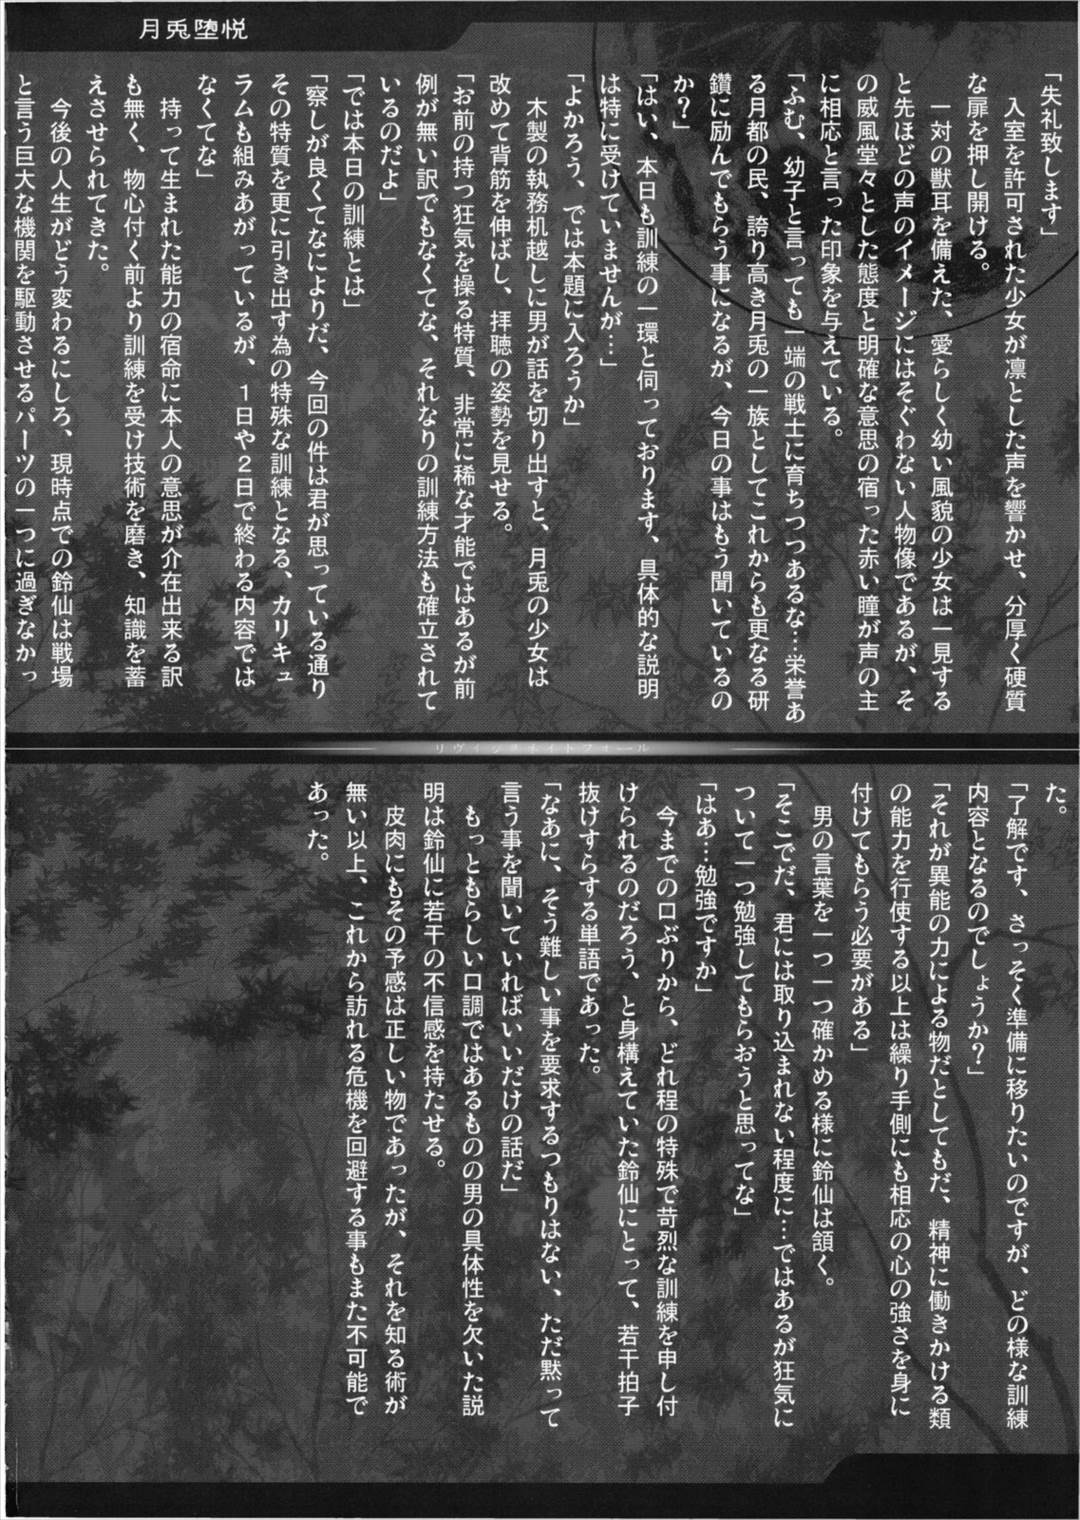 月兎堕悦
「失礼致します」
　入室を許可された少女が凛とした声を響かせ、分厚く硬質
な扉を押し開ける。
　一対の獣耳を備えた、愛らしく幼い風貌の少女は一見する
と先ほどの声のイメージにはそぐわない人物像であるが、そ
の威風堂々とした態度と明確な意思の宿った赤い瞳が声の主
に相応と言った印象を与えている。
「ふむ、幼子と言っても一端の戦士に育ちつつあるな…栄誉あ
る月都の民、誇り高き月兎の一族としてこれからも更なる研
鑽に励んでもらう事になるが、今日の事はもう聞いているの
か？」
「はい、本日も訓練の一環と伺っております、具体的な説明
は特に受けていませんが…」
「よかろう、では本題に入ろうか」
　木製の執務机越しに男が話を切り出すと、月兎の少女は
改めて背筋を伸ばし、拝聴の姿勢を見せる。
「お前の持つ狂気を操る特質、非常に稀な才能ではあるが前
例が無い訳でもなくてな、それなりの訓練方法も確立されて
いるのだよ」
「では本日の訓練とは」
「察しが良くてなによりだ、今回の件は君が思っている通り
その特質を更に引き出す為の特殊な訓練となる、カリキュ
ラムも組みあがっているが、１日や２日で終わる内容では
なくてな」
　持って生まれた能力の宿命に本人の意思が介在出来る訳
も無く、物心付く前より訓練を受け技術を磨き、知識を蓄
えさせられてきた。
　今後の人生がどう変わるにしろ、現時点での鈴仙は戦場
と言う巨大な機関を駆動させるパーツの一つに過ぎなかっ
リヴィジョネイトフォール
た。
「了解です、さっそく準備に移りたいのですが、どの様な訓練
内容となるのでしょうか？」
「それが異能の力による物だとしてもだ、精神に働きかける類
の能力を行使する以上は繰り手側にも相応の心の強さを身に
付けてもらう必要がある」
　男の言葉を一つ一つ確かめる様に鈴仙は頷く。
「そこでだ、君には取り込まれない程度に…ではあるが狂気に
ついて一つ勉強してもらおうと思ってな」
「はあ…勉強ですか」
　今までの口ぶりから、どれ程の特殊で苛烈な訓練を申し付
けられるのだろう、と身構えていた鈴仙にとって、若干拍子
抜けすらする単語であった。
「なあに、そう難しい事を要求するつもりはない、ただ黙って
言う事を聞いていればいいだけの話だ」
　もっともらしい口調ではあるものの男の具体性を欠いた説
明は鈴仙に若干の不信感を持たせる。
　皮肉にもその予感は正しい物であったが、それを知る術が
無い以上、これから訪れる危機を回避する事もまた不可能で
あった。